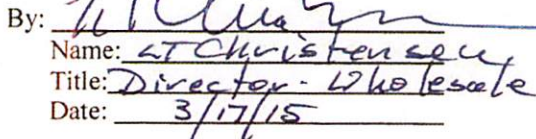 By:
Name: LT Christensen
Title: Director - Wholesale
Date: 3/17/15